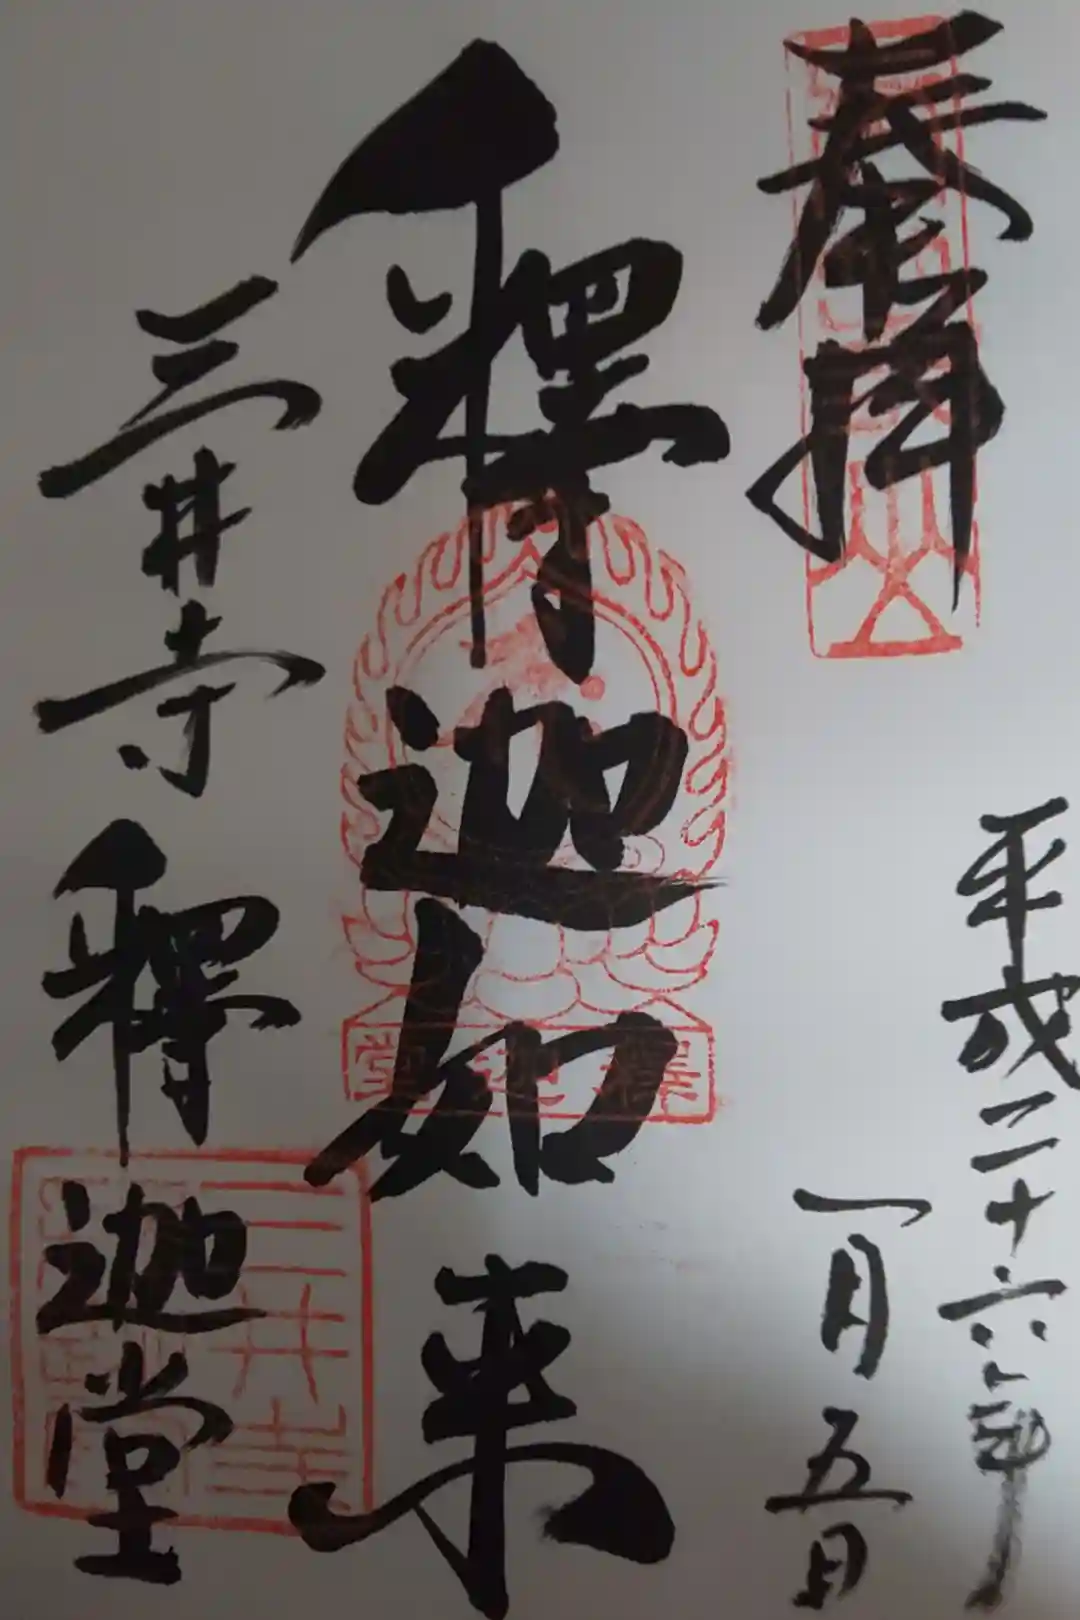 奉拝
平成二十六年
一月五日
釋迦如来
三井寺釋迦堂
釋迦堂
三井寺